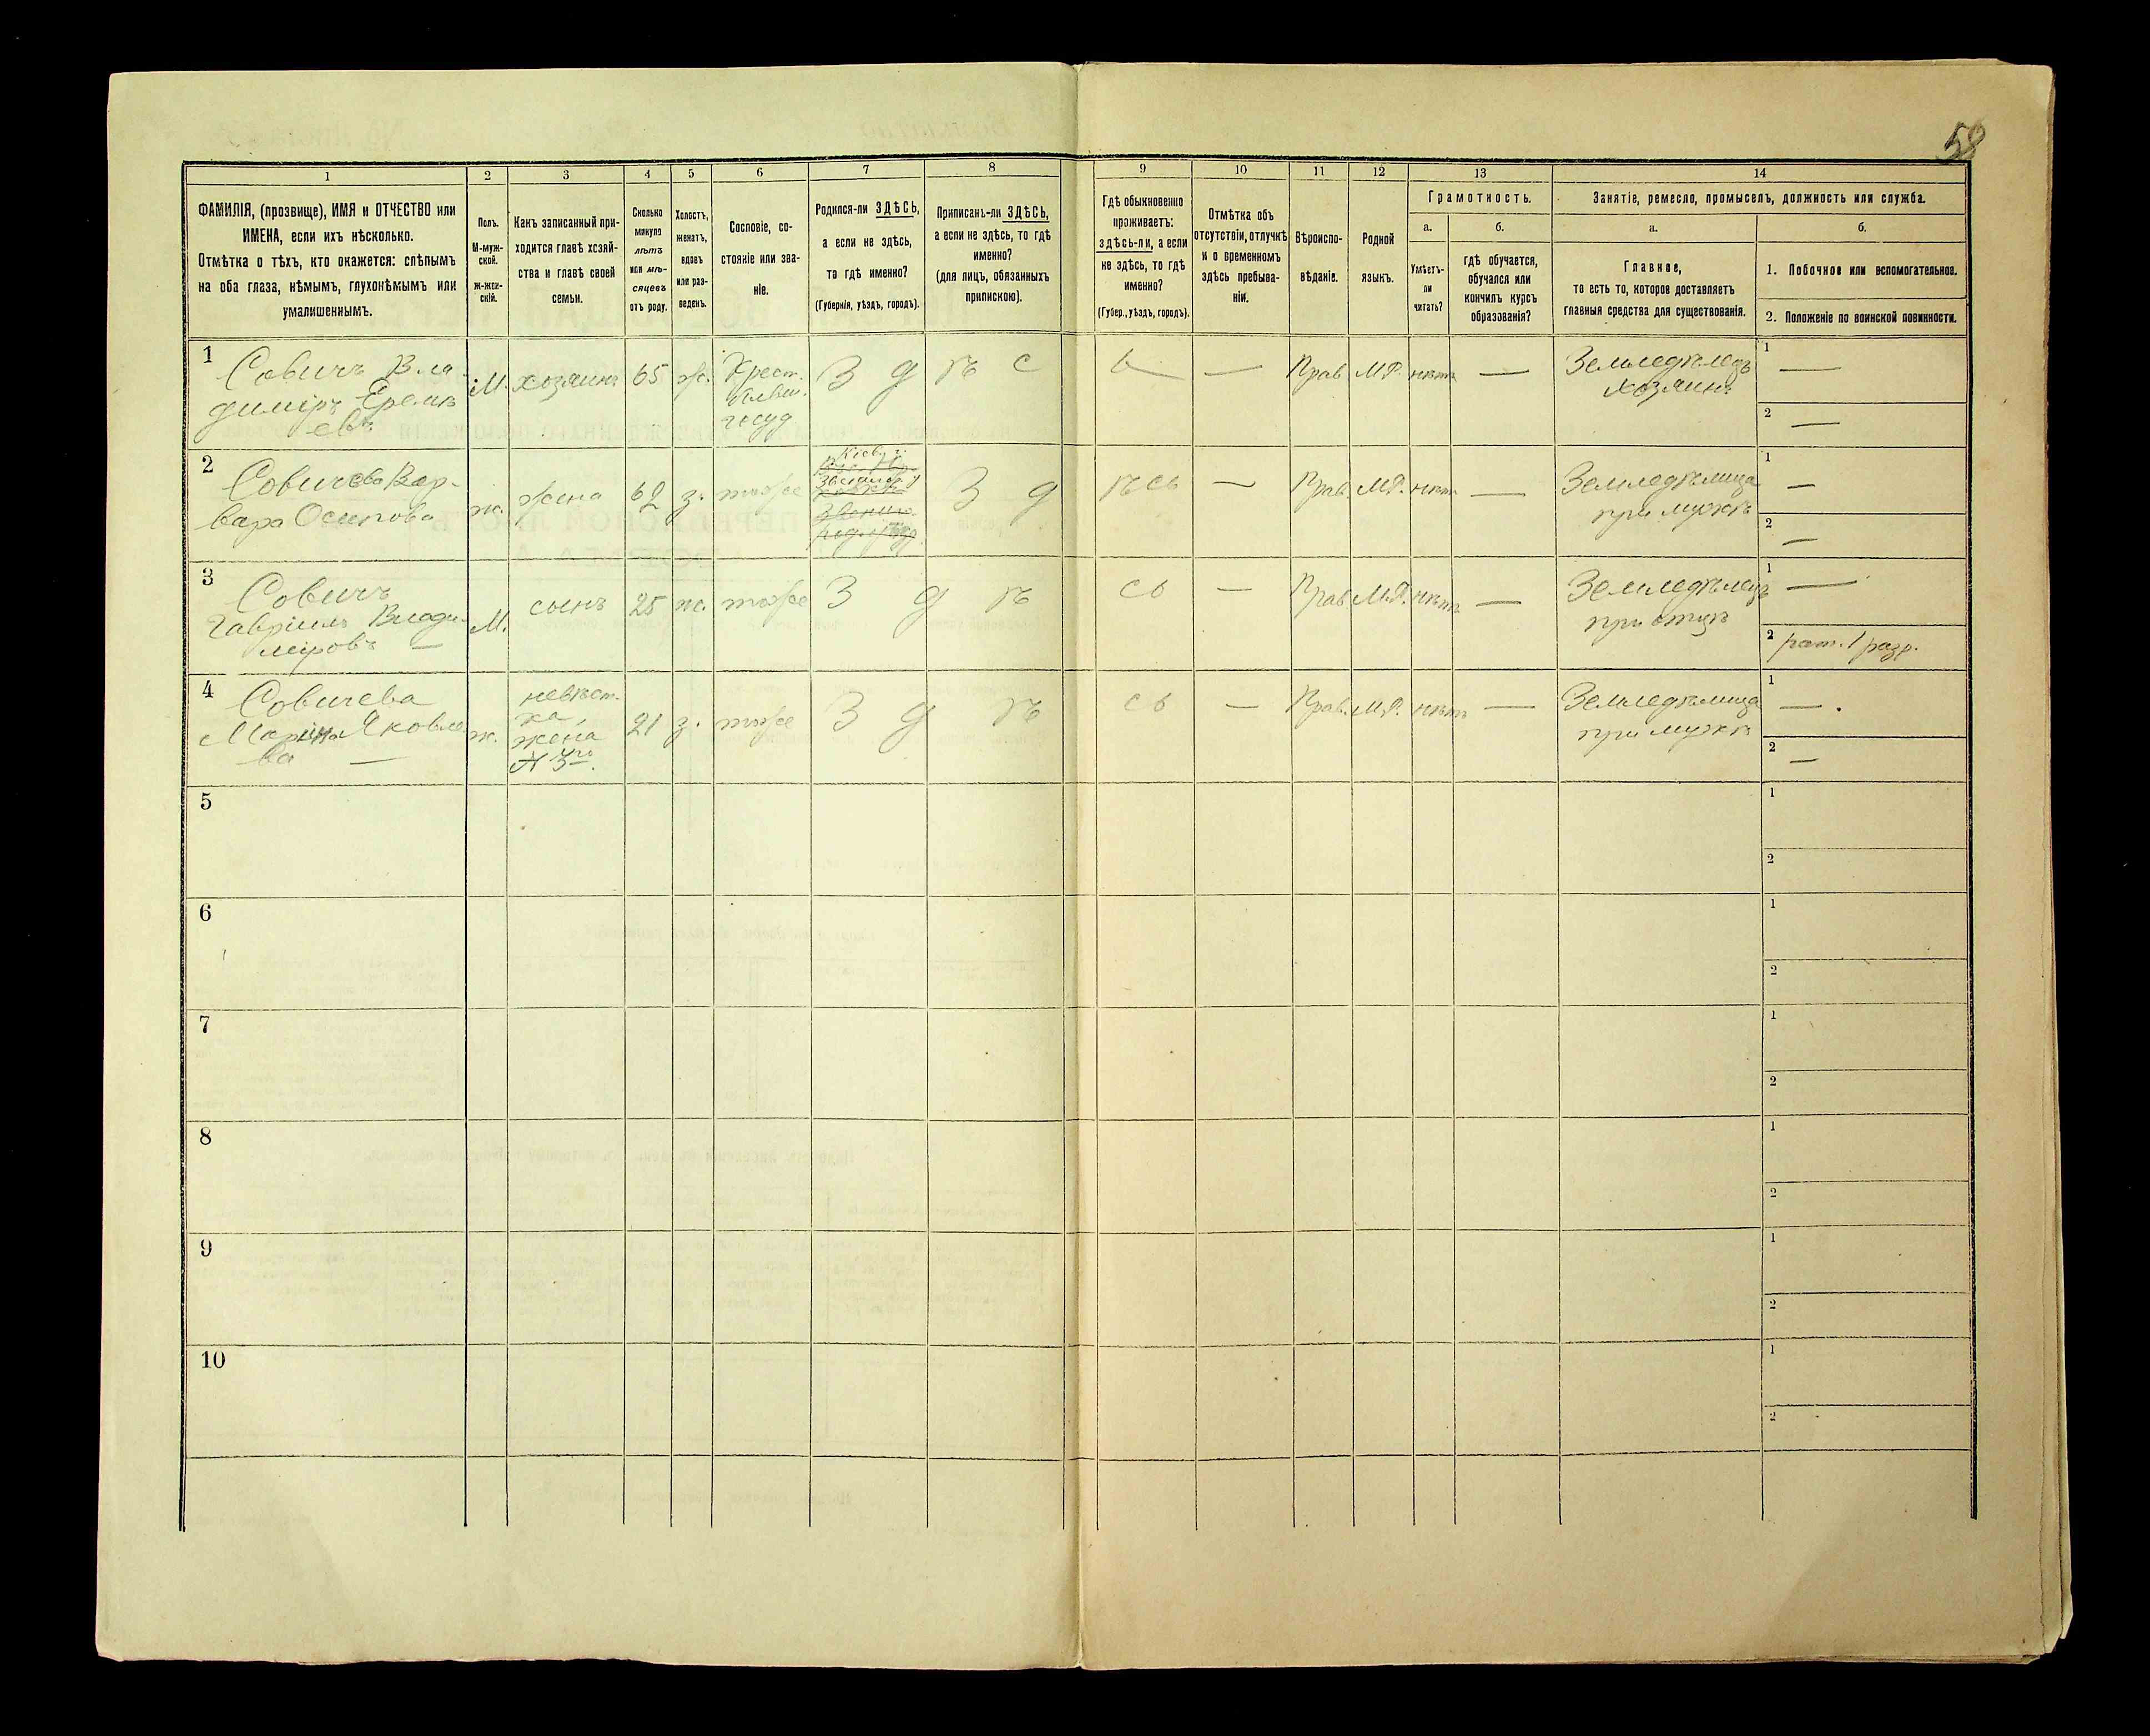 58
1
2
3
4
5
6
7
8
9
10
11
12
13
14
ФАМИЛІЯ, (прозвище), ИМЯ и ОТЧЕСТВО или
ИМЕНА, если ихъ нѣсколько.
Отмѣтка о тѣхъ, кто окажется: слѣпымъ
на оба глаза, нѣмымъ, глухонѣмымъ или
умалишеннымъ.
Полъ.
М-муж-
ской.
ж-жен-
скій.
Какъ записанный при-
ходится главѣ хозяй-
ства и главѣ своей
семьи.
Сколько
минуло
лѣтъ
или мѣ-
сяцевъ
отъ роду.
Холостъ,
женатъ,
вдовъ
или раз-
веденъ.
Сословіе, со-
стояніе или зва-
ніе.
Родился-ли ЗДѢСЬ,
а если не здѣсь,
то гдѣ именно?
(Губернія, уѣздъ, городъ).
Приписанъ-ли ЗДѢСЬ,
а если не здѣсь, то гдѣ
именно?
(для лицъ, обязанныхъ
припискою).
Гдѣ обыкновенно
проживаетъ:
здѣсь-ли, а если
не здѣсь, то гдѣ
именно?
(Губер., уѣздъ, городъ).
Отмѣтка объ
отсутствіи, отлучкѣ
и о временномъ
здѣсь пребыва-
ніи.
Вѣроиспо-
вѣданіе.
Родной
языкъ.
Грамотность.
а.
Умѣетъ-
ли
читать?
б.
гдѣ обучается,
обучался или
кончилъ курсъ
образованія?
Занятіе, ремесло, промыселъ, должность или служба.
а.
Главное,
то есть то, которое доставляетъ
главныя средства для существованія.
б.
1. Побочное или вспомогательное.
2. Положеніе по воинской повинности.
1
Совичъ Вла-
диміръ Еремѣ
евъ
М.
хозяинъ
65
ж.
Крест.
бывш.
госуд
З д ѣ с ь
—
Прав
М.Р.
нѣтъ
—
Земледѣлецъ
хозяинъ
1 —
2 —
2
Совичева Вар-
вара Осипова
ж.
жена
62
з.
тоже
Кіев. г.
З д ѣсь
—
Прав.
М.Р.
нѣтъ
—
Земледѣлица
при мужѣ
1 —
2 —
3
Совичъ
Гавріилъ Влади-
міровъ —
М.
сынъ
25
ж.
тоже
З д ѣ сь
—
Прав
М.Р.
нѣтъ
—
Земледѣлецъ
при отцѣ
1 —
2 рат. 1 разр.
4
Совичева
Марина Яковле
ва —
ж.
невѣст-
ка,
жена
№ 3го.
21
з.
тоже
З д ѣ сь
—
Прав.
М.Р.
нѣтъ
—
Земледѣлица
при мужѣ
1 —
2 —
5
1
2
6
1
2
7
1
2
8
1
2
9
1
2
10
1
2